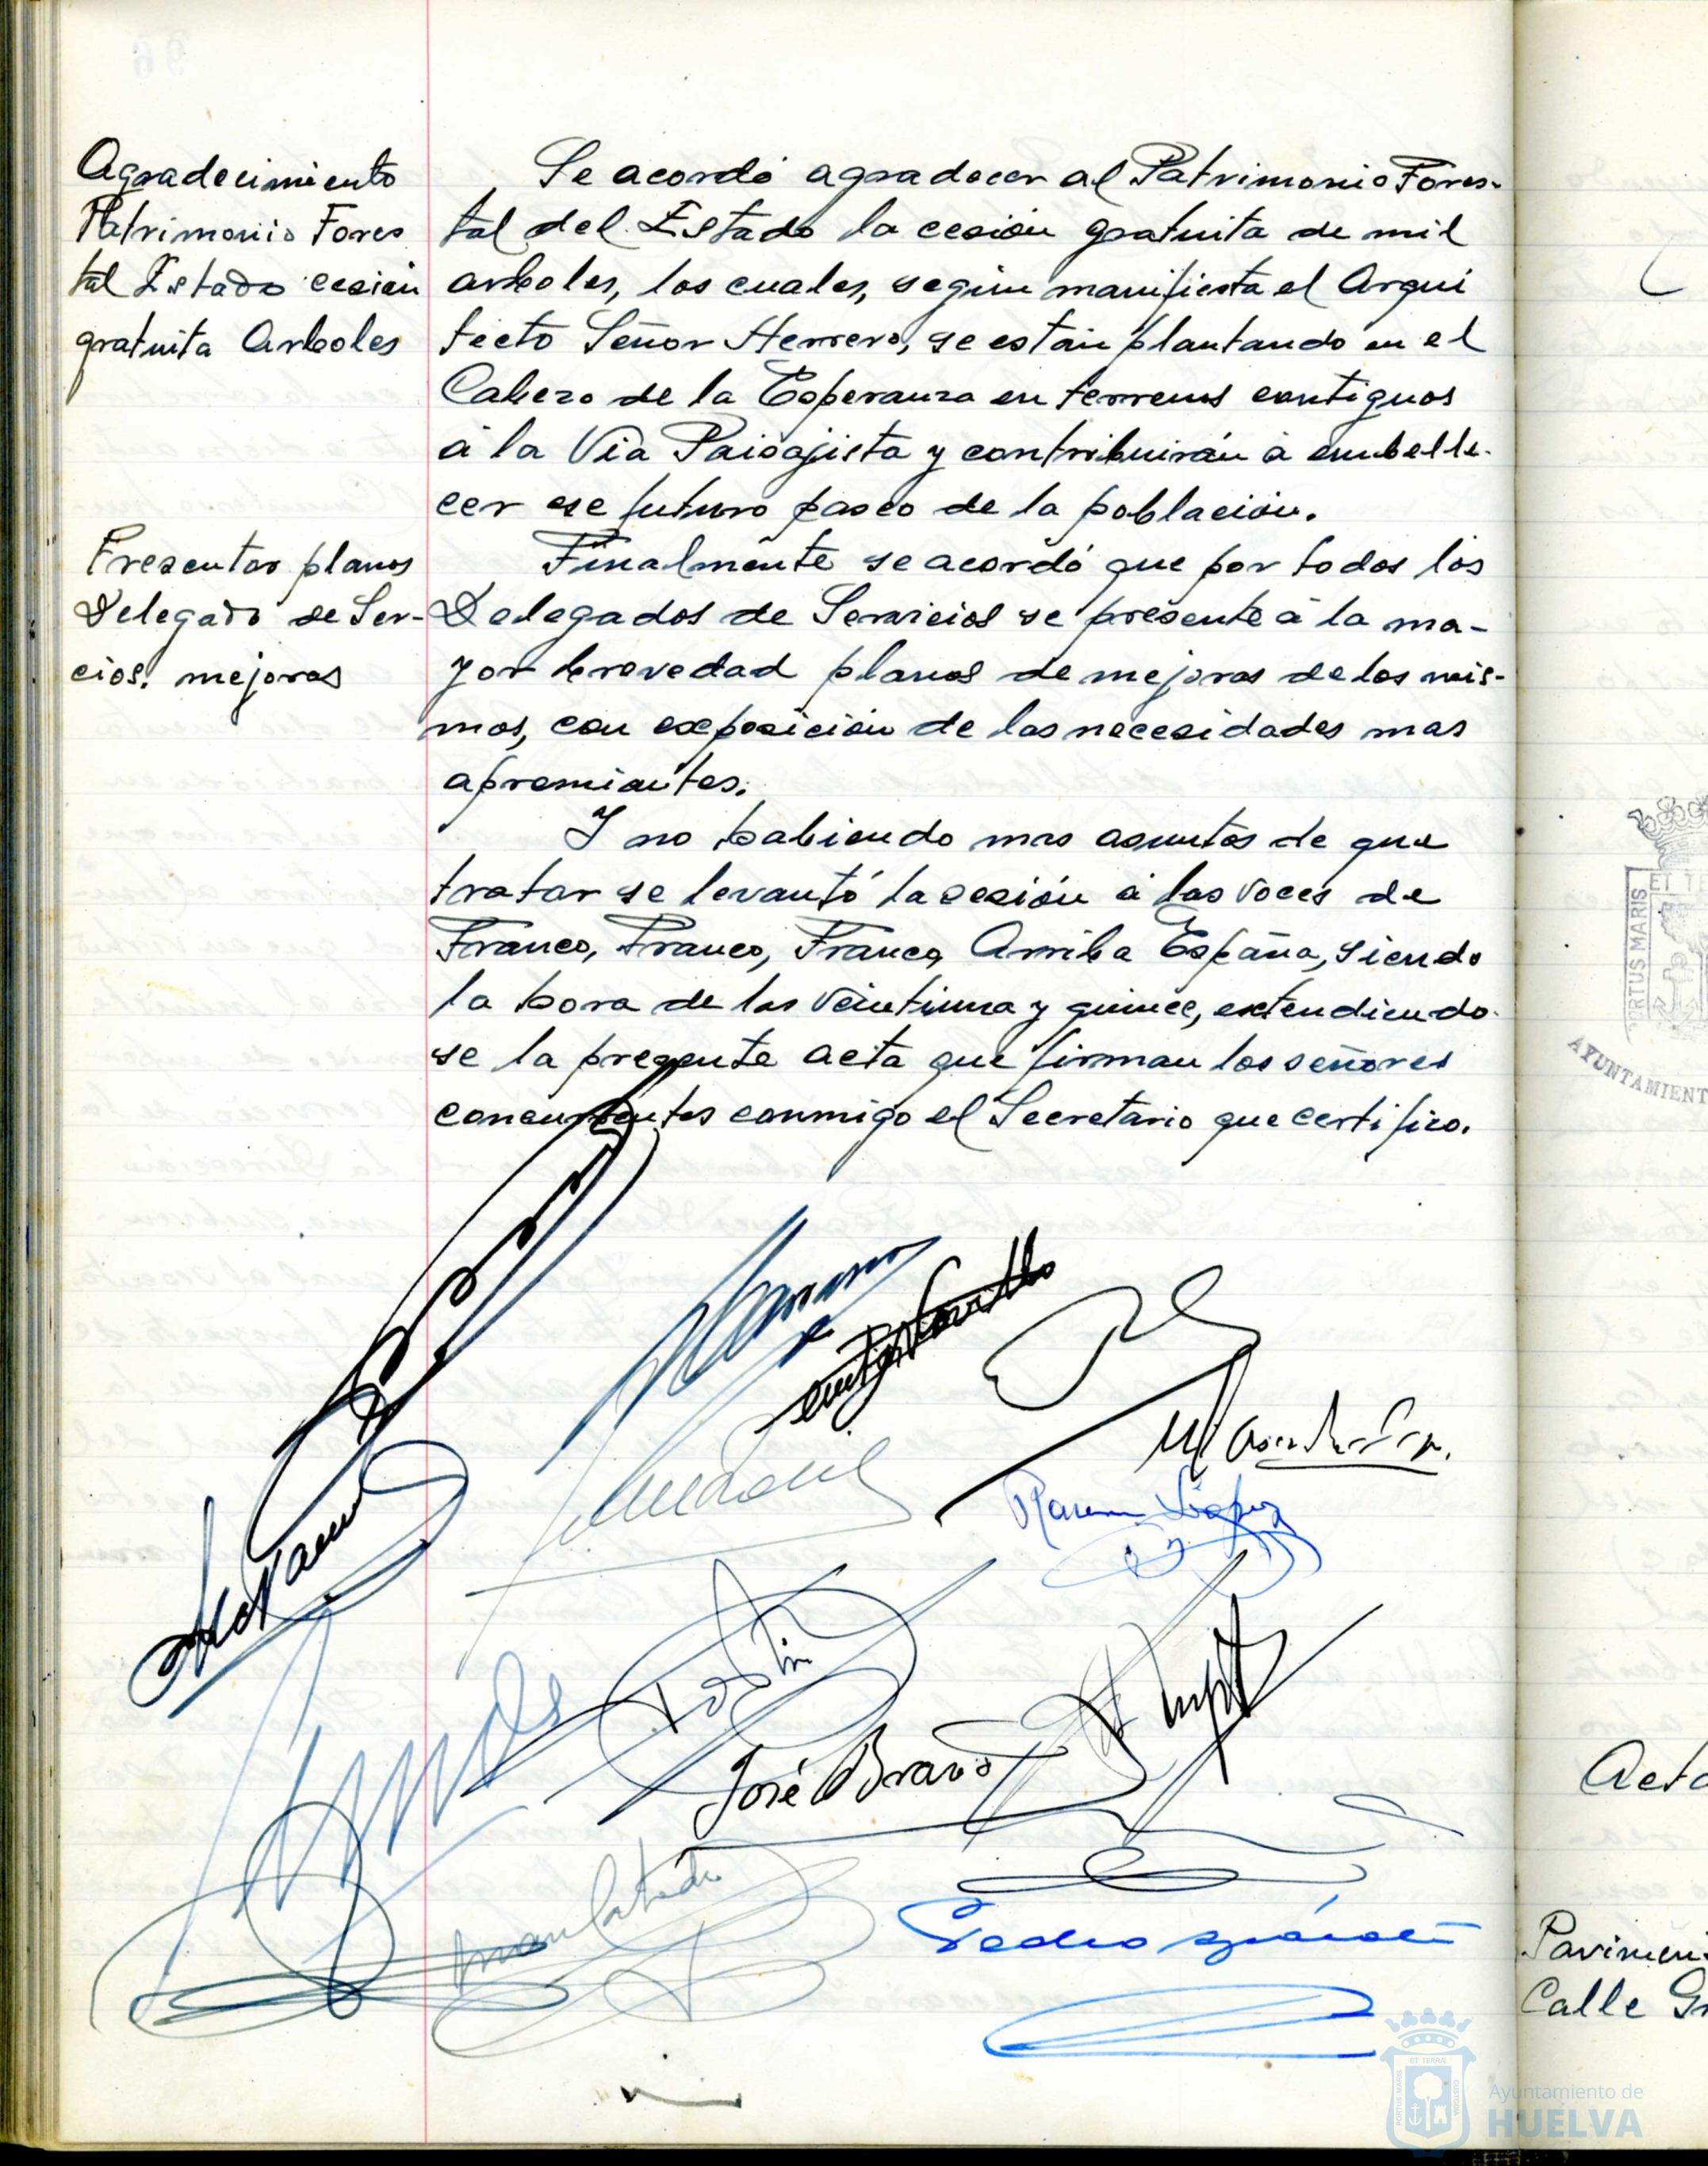 Agradecimiento
Patrimonio Fores
tal Estado cesión
gratuita Arboles
Se acordó agradecer al Patrimonio Fores-
tal del Estado la cesión gratuita de mil
arboles, los cuales, según manifiesta el Arqui
tecto Señor Herrero, se están plantando en el
Cabezo de la Esperanza en terrenos contiguos
á la Vía Paisajista y contribuirán á embelle-
cer ese futuro paseo de la población.
Presentar planos
Delegado de Ser-
cios. mejoras
Finalmente se acordó que por todos los
Delegados de Servicios se presente á la ma-
yor brevedad planos de mejoras de los mis-
mos, con exposición de las necesidades mas
apremiantes.
Y no habiendo mas asuntos de que
tratar se levantó la sesión á las voces de
Franco, Franco, Franco, Arriba España, siendo
la hora de las veintiuna y quince, extendiendo-
se la presente acta que firman los señores
concurrentes conmigo el Secretario que certifico.
Ramon López
José Bravo
Pedro
PORTUS MARIS
ET TE
AYUNTAMIENT
Acta
Pavimen
Calle
Ayuntamiento de
HUELVA